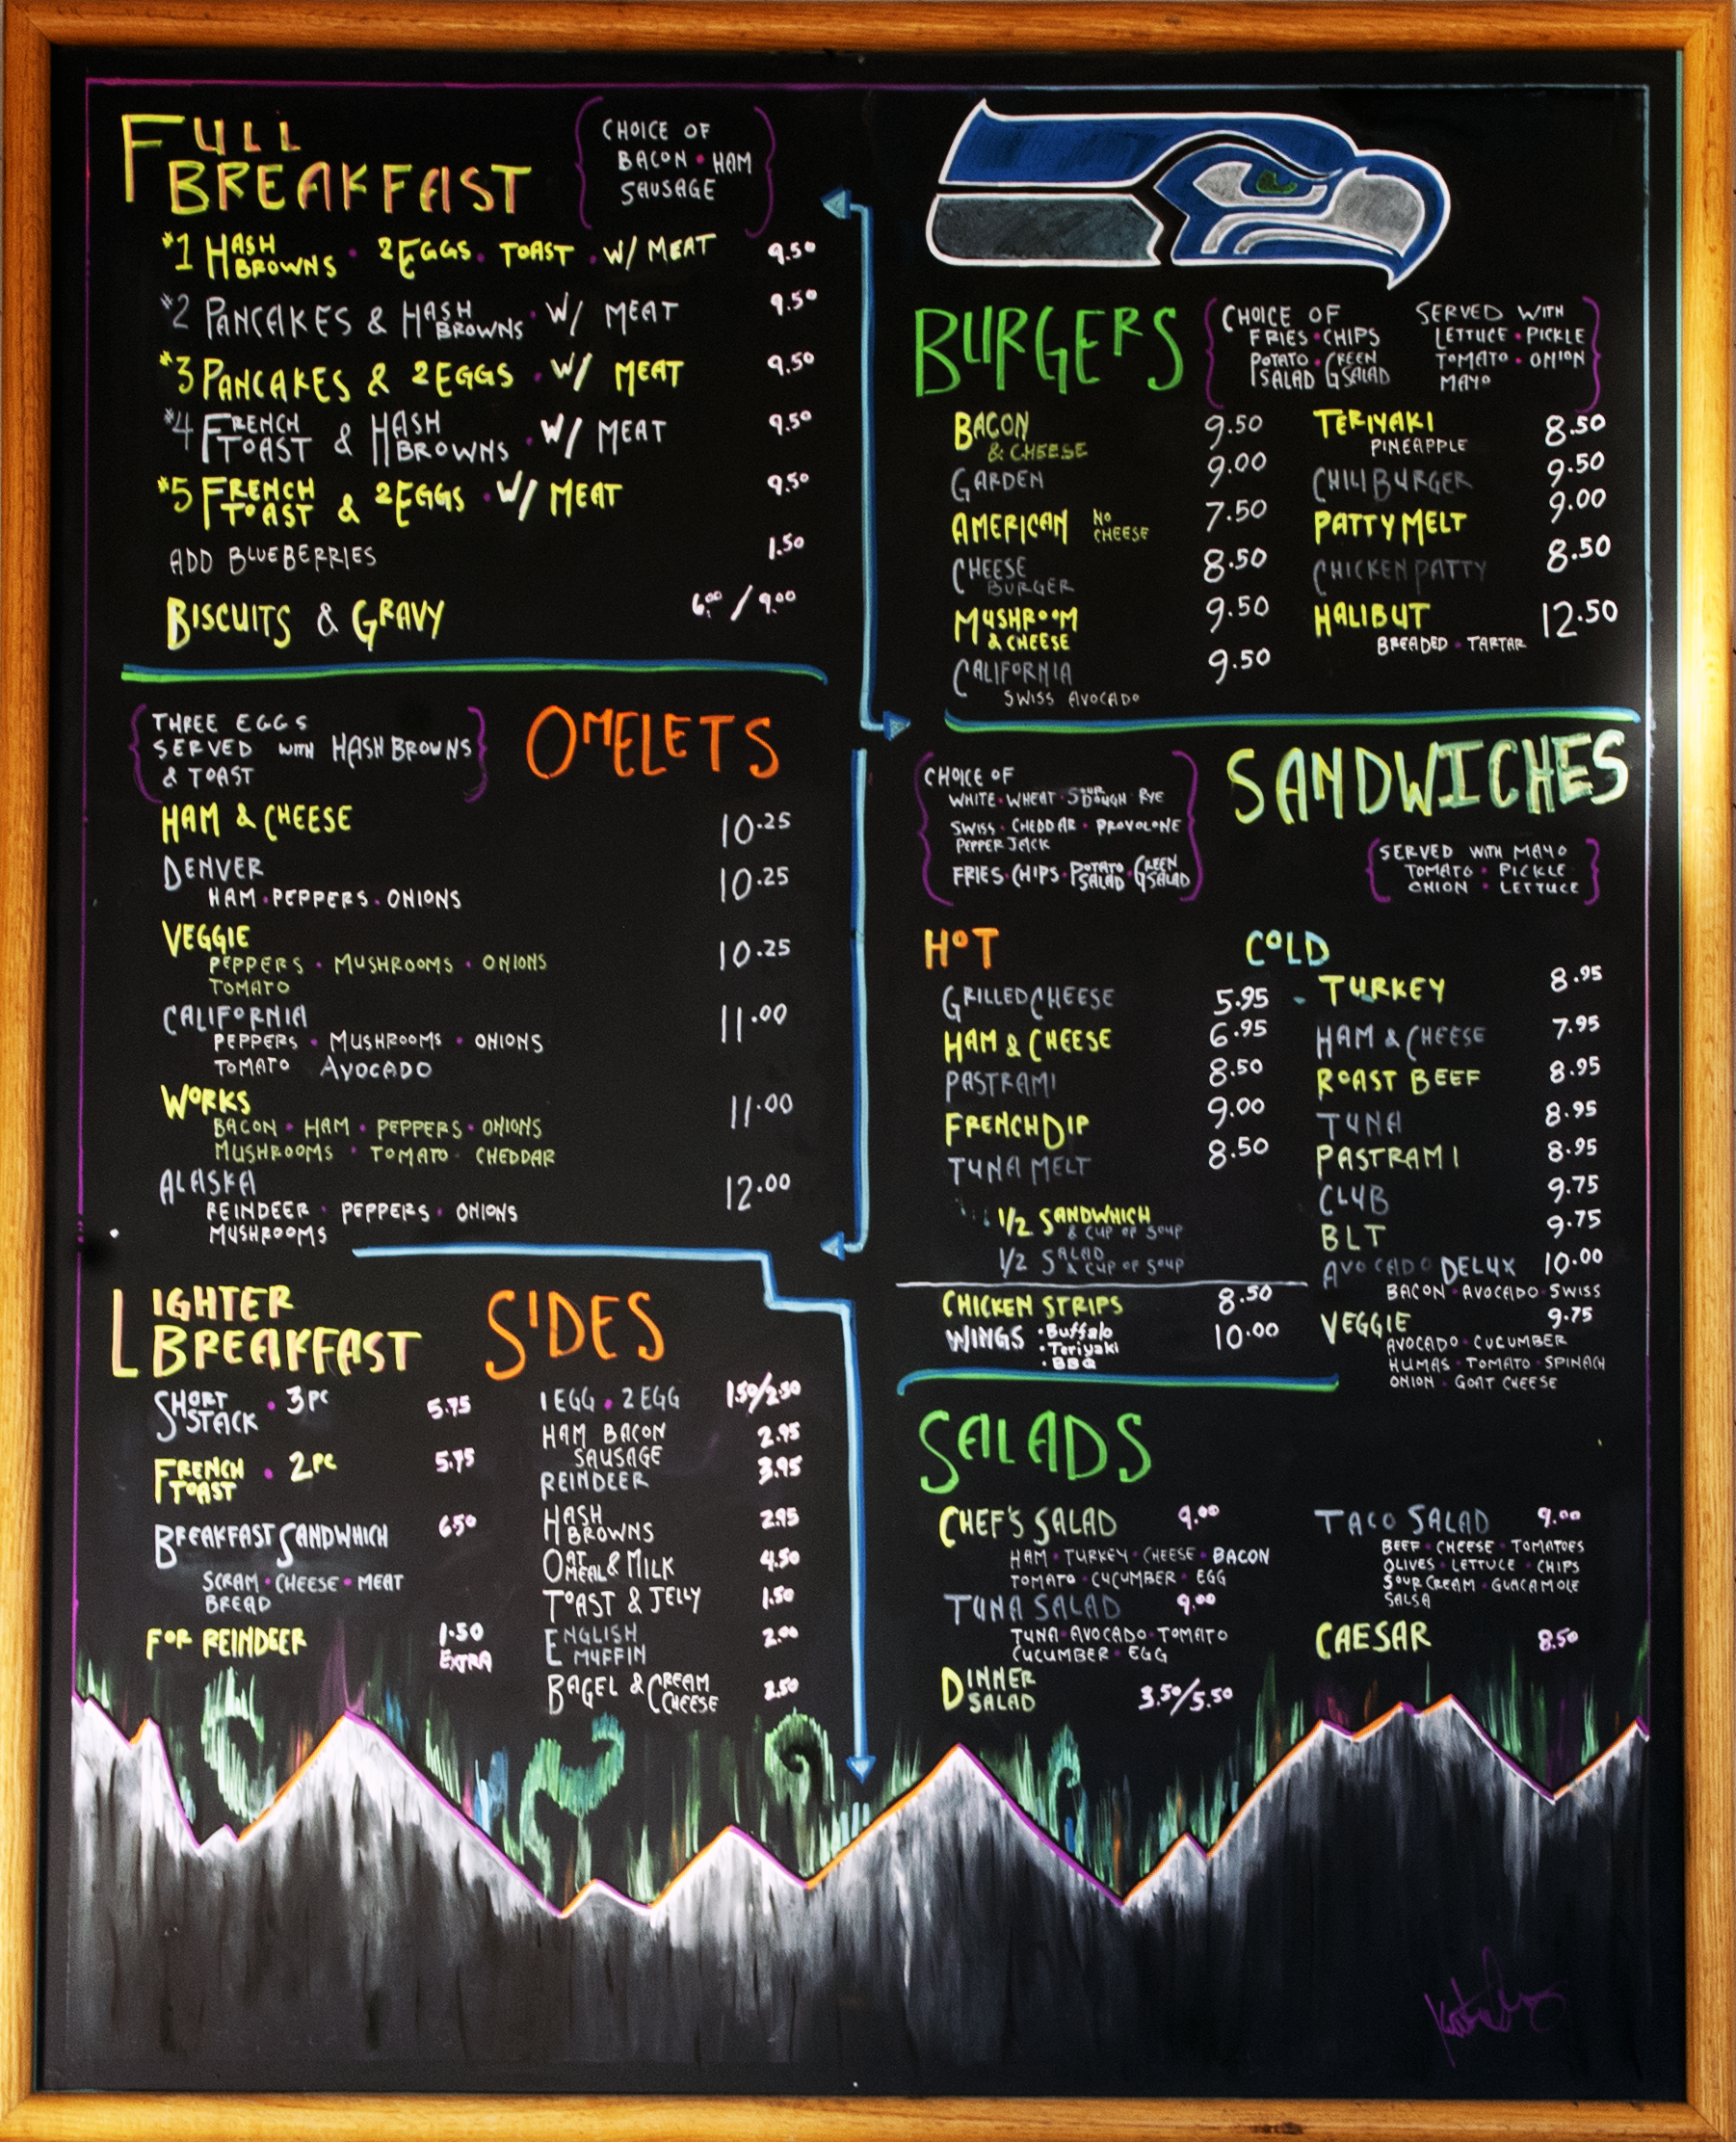 FULL
BREAKFAST
CHOICE OF
BACON • HAM
SAUSAGE
#1 HASH BROWNS • 2 EGGS • TOAST • W/ MEAT 9.50
#2 PANCAKES & HASH BROWNS • W/ MEAT 9.50
#3 PANCAKES & 2 EGGS • W/ MEAT 9.50
#4 FRENCH TOAST & HASH BROWNS • W/ MEAT 9.50
#5 FRENCH TOAST & 2 EGGS • W/ MEAT 9.50
ADD BLUEBERRIES 1.50
BISCUITS & GRAVY 6.00 / 9.00
THREE EGGS
SERVED WITH HASH BROWNS
& TOAST
OMELETS
HAM & CHEESE 10.25
DENVER 10.25
HAM • PEPPERS • ONIONS
VEGGIE 10.25
PEPPERS • MUSHROOMS • ONIONS
TOMATO
CALIFORNIA 11.00
PEPPERS • MUSHROOMS • ONIONS
TOMATO AVOCADO
WORKS 11.00
BACON • HAM • PEPPERS • ONIONS
MUSHROOMS • TOMATO • CHEDDAR
ALASKA 12.00
REINDEER • PEPPERS • ONIONS
MUSHROOMS
LIGHTER
BREAKFAST
SHORT STACK • 3 PC 5.75
FRENCH TOAST • 2 PC 5.75
BREAKFAST SANDWHICH 6.50
SCRAM • CHEESE • MEAT
BREAD
FOR REINDEER 1.50
EXTRA
SIDES
1 EGG • 2 EGG 1.50/2.50
HAM BACON 2.95
SAUSAGE
REINDEER 3.95
HASH BROWNS 2.95
OATMEAL & MILK 4.50
TOAST & JELLY 1.50
ENGLISH MUFFIN 2.00
BAGEL & CREAM CHEESE 2.50
BURGERS
CHOICE OF
FRIES • CHIPS
POTATO SALAD • GREEN SALAD
SERVED WITH
LETTUCE • PICKLE
TOMATO • ONION
MAYO
BACON 9.50
& CHEESE
GARDEN 9.00
AMERICAN NO CHEESE 7.50
CHEESE BURGER 8.50
MUSHROOM 9.50
& CHEESE
CALIFORNIA 9.50
SWISS AVOCADO
TERIYAKI 8.50
PINEAPPLE
CHILI BURGER 9.50
PATTY MELT 9.00
CHICKEN PATTY 8.50
HALIBUT 12.50
BREADED • TARTAR
SANDWICHES
CHOICE OF
WHITE • WHEAT • SOUR DOUGH • RYE
SWISS • CHEDDAR • PROVOLONE
PEPPER JACK
FRIES • CHIPS • POTATO SALAD • GREEN SALAD
SERVED WITH MAYO
TOMATO • PICKLE
ONION • LETTUCE
HOT
GRILLED CHEESE 5.95
HAM & CHEESE 6.95
PASTRAMI 8.50
FRENCH DIP 9.00
TUNA MELT 8.50
1/2 SANDWHICH
& CUP OF SOUP
1/2 SALAD
& CUP OF SOUP
CHICKEN STRIPS 8.50
WINGS • Buffalo 10.00
• Teriyaki
• BBQ
COLD
TURKEY 8.95
HAM & CHEESE 7.95
ROAST BEEF 8.95
TUNA 8.95
PASTRAMI 8.95
CLUB 9.75
BLT 9.75
AVOCADO DELUX 10.00
BACON • AVOCADO • SWISS
VEGGIE 9.75
AVOCADO • CUCUMBER
HUMAS • TOMATO • SPINACH
ONION • GOAT CHEESE
SALADS
CHEF'S SALAD 9.00
HAM • TURKEY • CHEESE • BACON
TOMATO • CUCUMBER • EGG
TUNA SALAD 9.00
TUNA • AVOCADO • TOMATO
CUCUMBER • EGG
DINNER SALAD 3.50/5.50
TACO SALAD 9.00
BEEF • CHEESE • TOMATOES
OLIVES • LETTUCE • CHIPS
SOUR CREAM • GUACAMOLE
SALSA
CAESAR 8.50